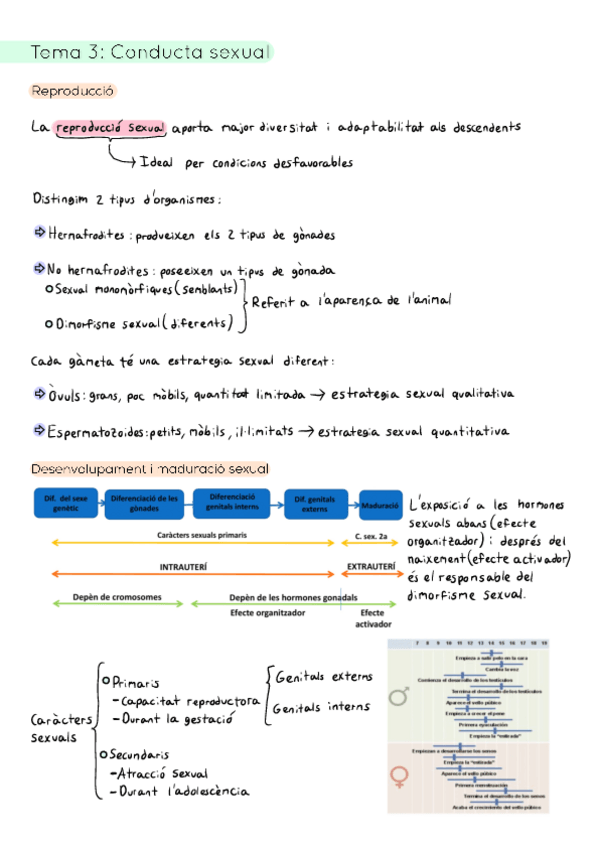 Tema 3: Conducta sexual
Reproducció
La reproducció sexual aporta major diversitat i adaptabilitat als descendents
Ideal per condicions desfavorables
Distingim 2 tipus d'organismes:
Hermafrodites: produeixen els 2 tipus de gònades
No hermafrodites: poseeixen un tipus de gònada
Sexual monomòrfiques (semblants)
Dimorfisme sexual (diferents)
Referit a l'aparença de l'animal
Cada gàmeta té una estrategia sexual diferent:
Òvuls: grans, poc mòbils, quantitat limitada → estrategia sexual qualitativa
Espermatozoides: petits, mòbils, il·limitats → estrategia sexual quantitativa
Desenvolupament i maduració sexual
Dif. del sexe genètic
Diferenciació de les gònades
Diferenciació genitals interns
Dif. genitals externs
Maduració
Caràcters sexuals primaris
C. sex. 2a
INTRAUTERÍ
EXTRAUTERÍ
Depèn de cromosomes
Depèn de les hormones gonadals
Efecte organitzador
Efecte activador
L'exposició a les hormones
sexuals abans (efecte
organitzador) i després del
naixement (efecte activador)
és el responsable del
dimorfisme sexual.
Caràcters
sexuals
Primaris
-Capacitat reproductora
-Durant la gestació
Genitals externs
Genitals interns
Secundaris
-Atracció sexual
-Durant l'adolescència
7 8 9 10 11 12 13 14 15 16 17 18 19
Empieza a salir pelo en la cara
Cambia la voz
Comienza el desarrollo de los testículos
Termina el desarrollo de los testículos
Aparece el vello púbico
Empieza a crecer el pene
Primera eyaculación
Empieza la "estirada"
Empiezan a desarrollarse los senos
Empieza la "estirada"
Aparece el vello púbico
Primera menstruación
Termina el desarrollo de los senos
Acaba el crecimiento del vello púbico